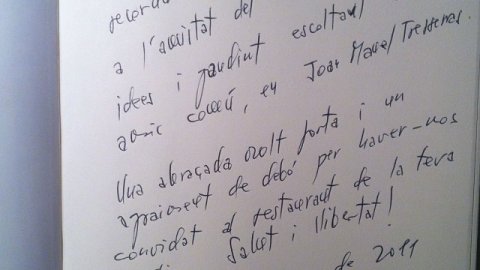 a l'amistat del
idees i gaudint escoltant
amic comú, en Joan Manel Tresserras.
Una abraçada molt forta i un
agraïment de debó per haver-nos
convidat al restaurant de la teva
Salut i llibertat!
de 2011